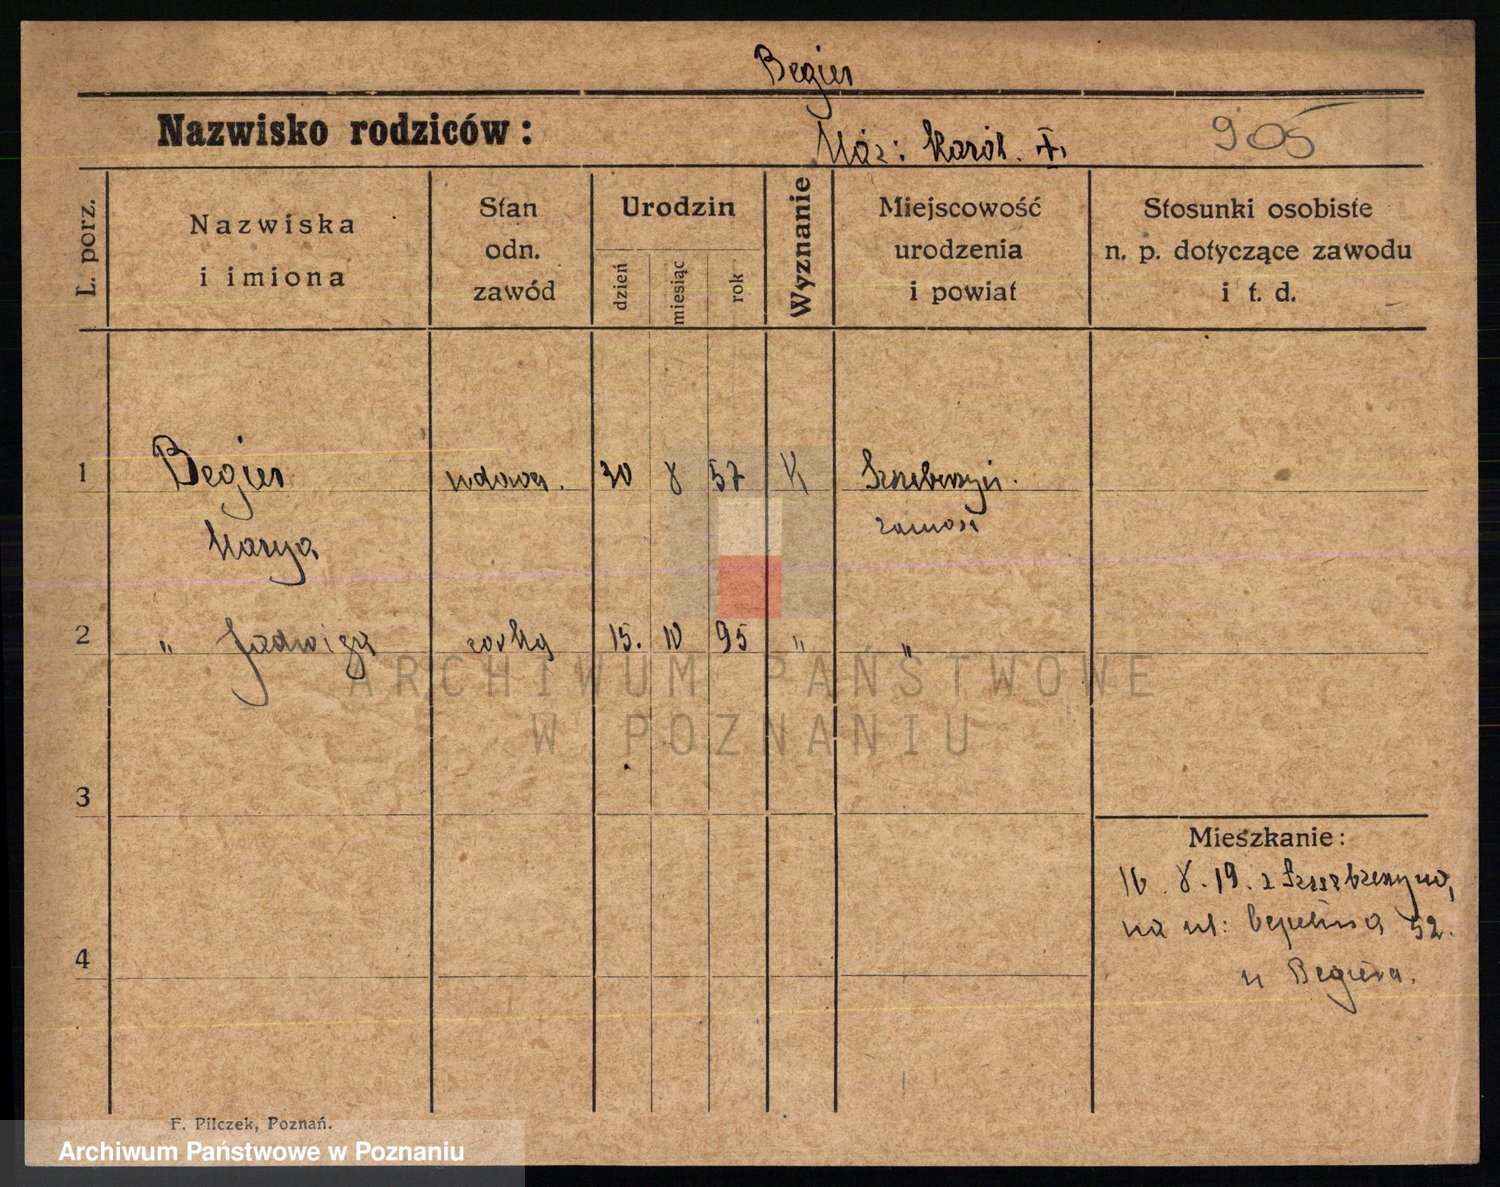 Begier
Nazwisko rodziców:
Mąż: Karól. 905
L. porz.
Nazwiska
i imiona
Stan
odn.
zawód
Urodzin
dzień
miesiąc
rok
Wyznanie
Miejscowość
urodzenia
i powiat
Stosunki osobiste
n. p. dotyczące zawodu
i t. d.
1 Begier wdowa. 8 57 K
Marya
2 " Jadwiga córka 15. 10 95 " "
3
4
Mieszkanie:
16. 8. 19. z
na ul: 52.
u Begiera.
ARCHIWUM PAŃSTWOWE
W POZNANIU
F. Pilczek, Poznań.
Archiwum Państwowe w Poznaniu